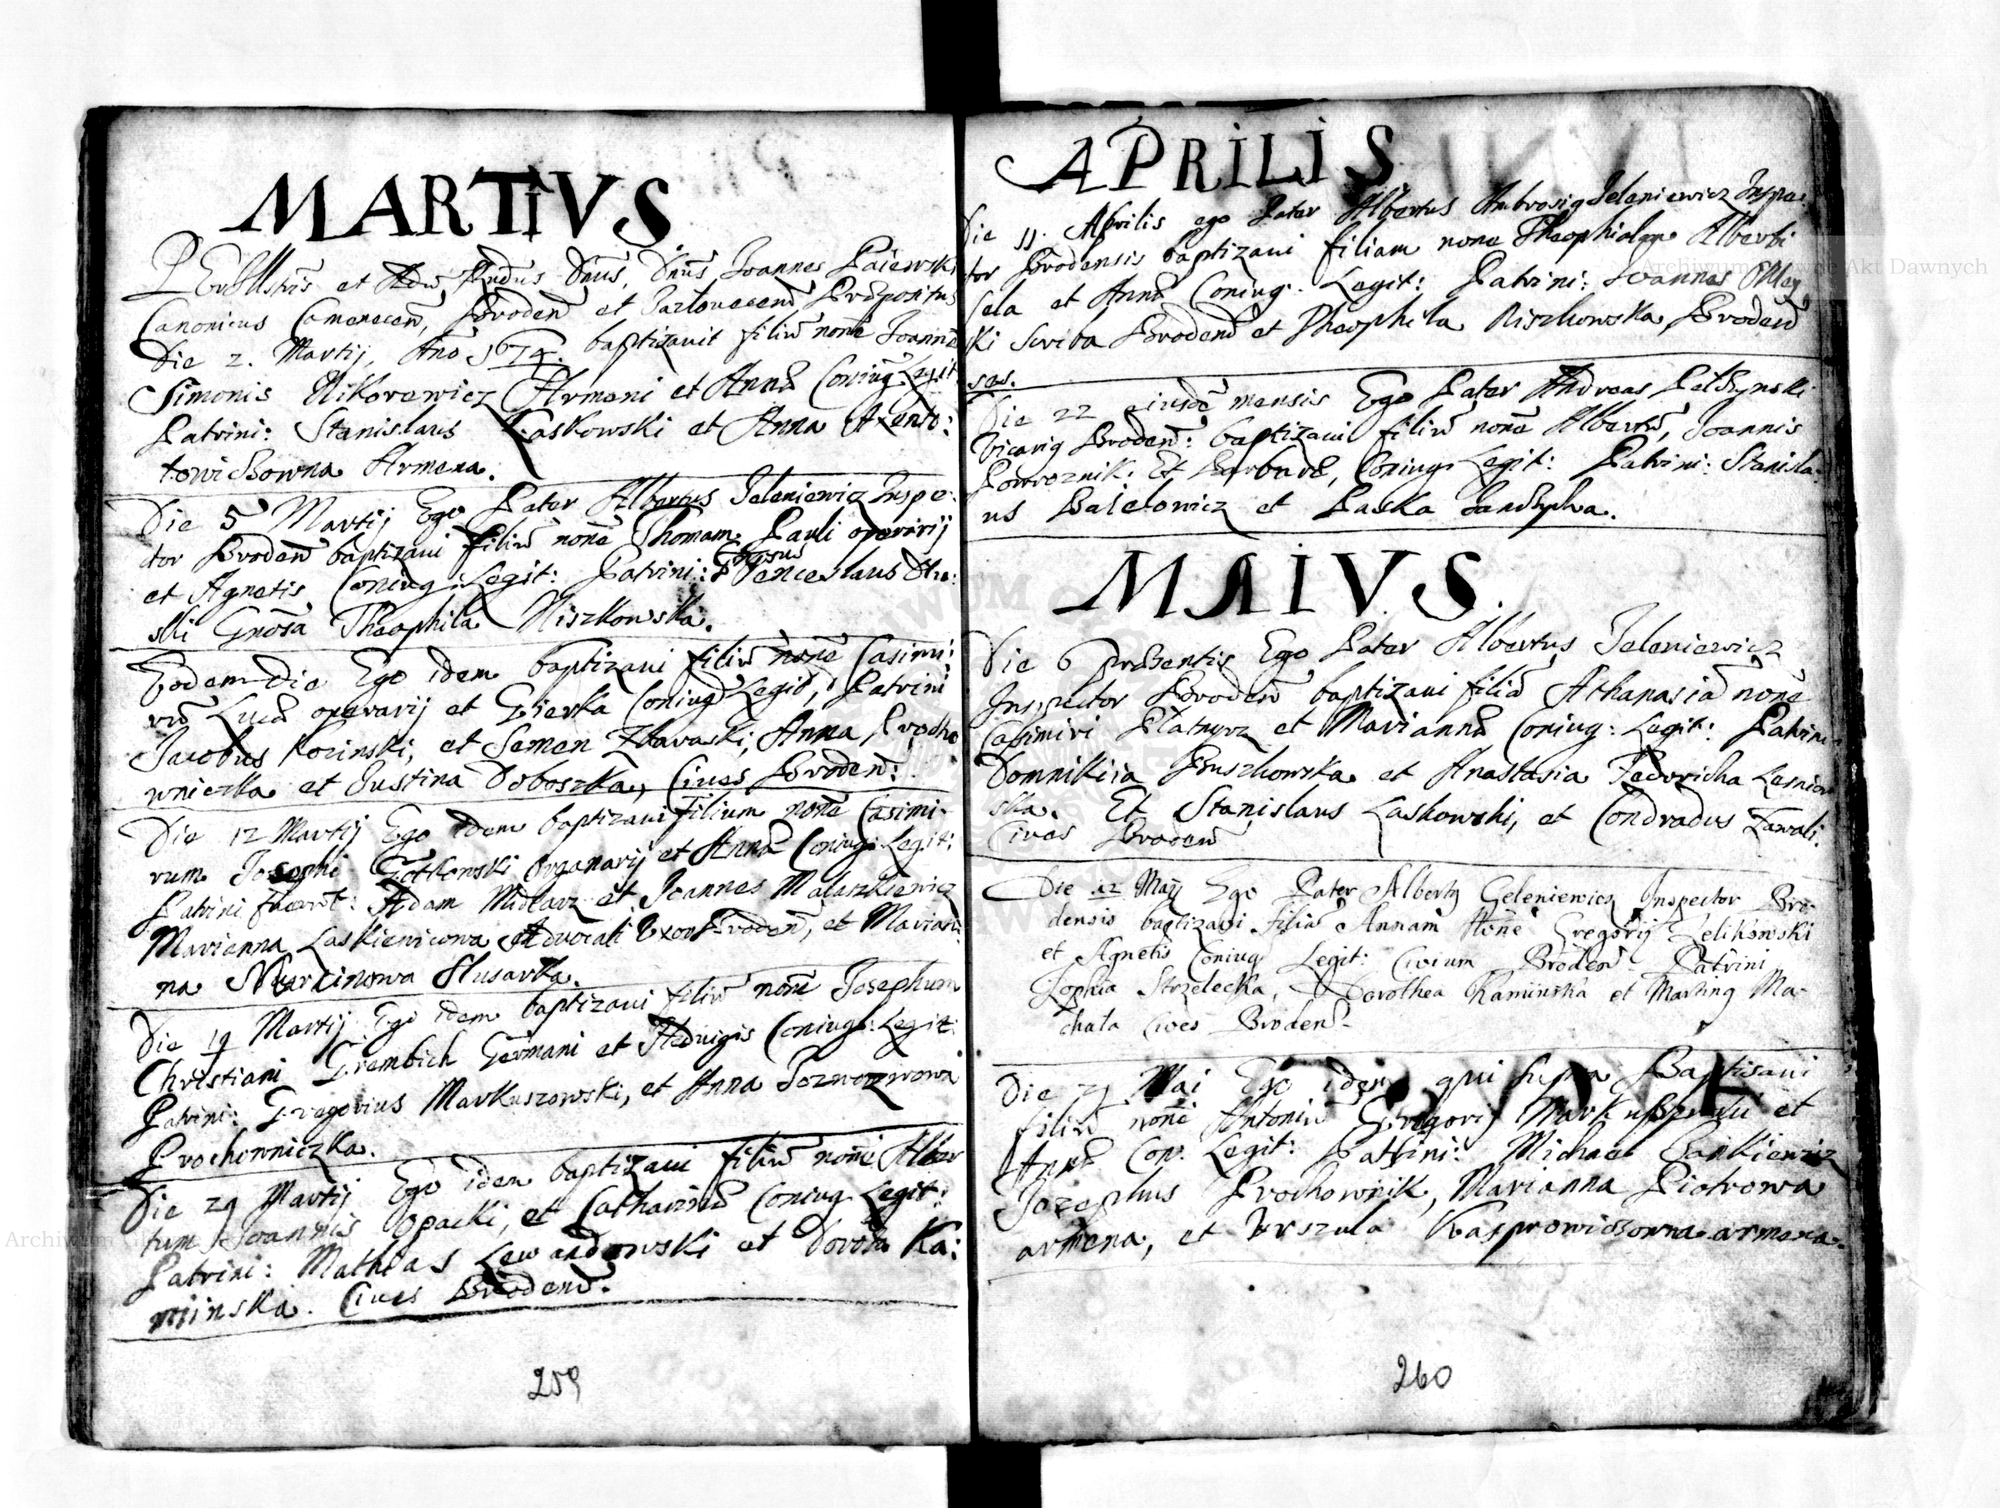 MARTiVS
PErIllustris et Adm Rndus Dnus, Dnus Joannes Paiewski
Canonicus Camenecen, Broden et Bazlouecen Prepositus
Die 2. Martij, Ano 1674. baptizauit filiu none Joanne
Simonis Nikorowicz Armeni et Anna Coniug: Legit
Patrini: Stanislaus Laskowski et Anna Axento:
towiczowna Armena.
Die 5 Martij Ego Pater Albertus Jeleniewicz Inspe-
ctor Broden baptizaui filiu none Thomam Pauli operarij
et Agnetis Coniug: Legit: Patrini: Gnosus Venceslaus
ski Gnosa Theophila Niszkowska.
Eodem die Ego idem baptizaui filiu none Casimi:
ru Luca operarij et Gierka Coniug Legit, Patrini
Jacobus Kozinski, et Semen Zbaraski, Anna Procho
wniczka et Justina Doboszka, Ciues Broden:
Die 12 Martij Ego idem baptizaui filium none Casimi-
rum Josephi Gotkowski Organarij et Anna Coniug: Legit:
Patrini fuerut: Adam Midlarz et Joannes Malaszkiewicz
Marianna Laskiewicowa Aduocati Uxor Broden, et Marian-
na Marcinowa Slusarka.
Die 19 Martij Ego idem baptizaui filiu none Josephum
Christiani Grembich Germani et Heduigis Coniug: Legit:
Patrini: Gregorius Markuszowski, et Anna
Prochowniczka.
Die 29 Martij Ego idem baptizaui filiu none Alber
tum Joannis Opacki, et Catharina Coniug Legit:
Patrini: Mathias Lewandowski et Dorota Ka:
miinska. Ciues Broden.
259
APRiLiS
Die 11. Aprilis ego Pater Albertus Ambrosig Jeleniewicz Inspe-
tor Brodensis baptizaui filiam none Theophiolam Alberti
et Anna Coniug: Legit: Patrini: Joannes
ki Scriba Broden et Theophila Niszkowska Broden
ses.
Die 22 eiusde mensis Ego Pater Andreas Pelczynski
Vicarig Broden: baptizaui filiu none Albertu, Joannis
Powroznik: Et Barbara, Coniug Legit: Patrini: Stanisla-
us Balelowicz et Paska
MAiVS
Die 6 presentis Ego Pater Albertus Jeleniewicz
Inspector Broden baptizaui filia Athanasia none
Casimiri Platnyrz et Marianna Coniug: Legit: Patrini
Domnikiia Pruszkowska et Anastasia Fedoricha Lesniow
ska. Et Stanislaus Laskowski, et Condradus Zawali.
Ciues Broden
Die 12 Maij Ego Pater Albertg Geleniewicz Inspector Bro-
densis baptizavi filia Annam None Gregorij Zelikowski
et Agnetis Coniug Legit: Civium Broden. Patrini
Zophia Strzelecka, Dorothea Kamiinska et Marting Ma-
chata Cives Broden.
Die 29 Mai Ego idem qui supra Baptisaui
filiu none Antoniu Gregorij et
Anna Con: Legit: Patrini: Michael Cankiewicz
Jozephus Prochownik, Marianna Piotrowa
armena, et Urszula Kasprowiczowna armena.
260